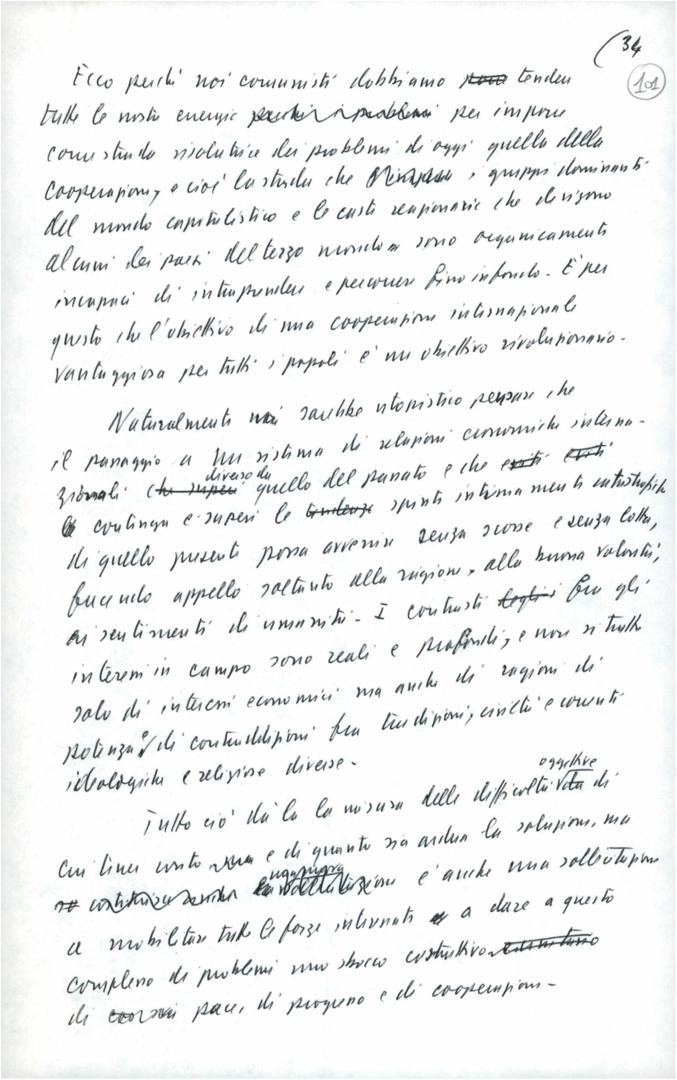 (34
101
Ecco perché noi comunisti dobbiamo tendere
tutte le nostre energie per imporre
come strada risolutrice dei problemi di oggi quella della
cooperazione, e cioè la strada che i gruppi dominanti
del mondo capitalistico e le caste reazionarie che dirigono
alcuni dei paesi del terzo mondo sono organicamente
incapaci di intraprendere e percorrere fino in fondo. È per
questo che l'obiettivo di una cooperazione internazionale
vantaggiosa per tutti i popoli è un obiettivo rivoluzionario.
Naturalmente sarebbe utopistico pensare che
il passaggio a un sistema di relazioni economiche interna-
diverso da
zionali quello del passato e che
contenga e superi le tendenze spinte intimamente catastrofiche
di quello presente possa avvenire senza scosse e senza lotta,
facendo appello soltanto alla ragione, alla buona volontà,
ai sentimenti di umanità. I contrasti fra gli
interessi in campo sono reali e profondi, e non si tratta
solo di interessi economici ma anche di ragioni di
potenza e di contraddizioni fra tradizioni, civiltà e correnti
ideologiche e religiose diverse.
oggettive
Tutto ciò dà la misura delle difficoltà da di
cui tener conto e di quanto sia ardua la soluzione, ma
è anche una sollecitazione
a mobilitare tutte le forze interessate a dare a questo
complesso di problemi uno sbocco costruttivo
di pace, di progresso e di cooperazione.